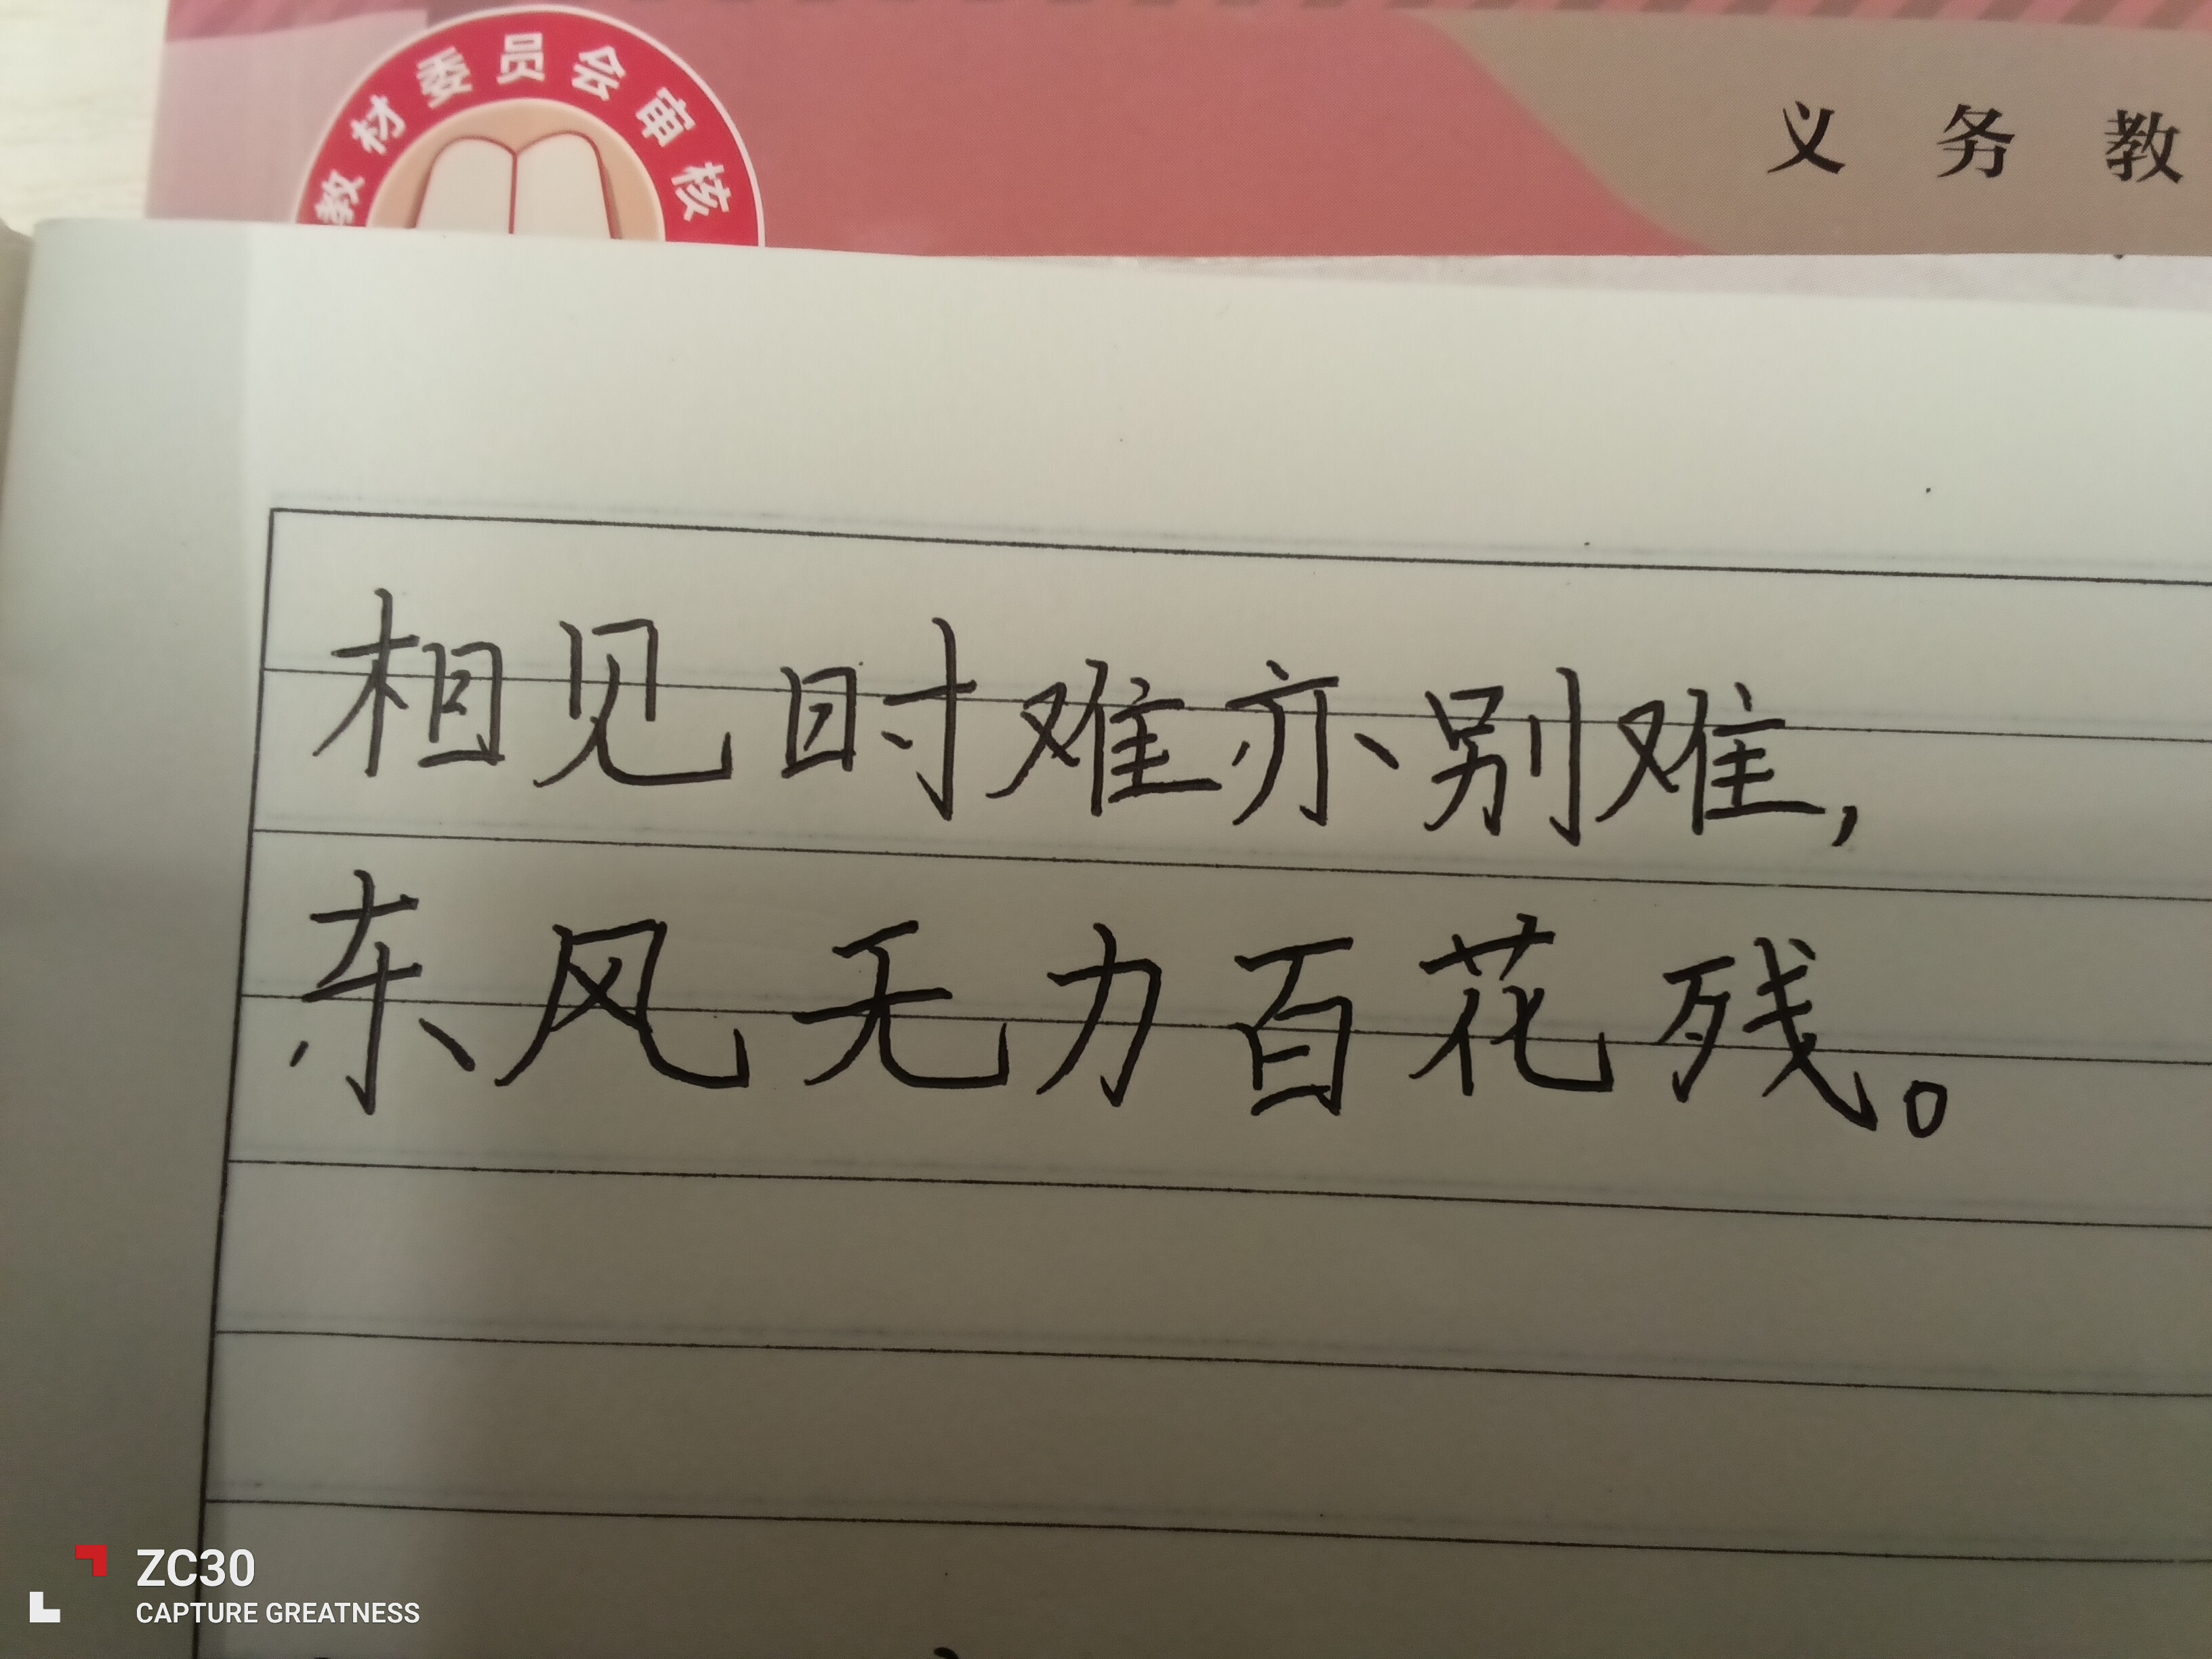 教材委员会审核
义务教
相见时难亦别难,
东风无力百花残。
ZC30
CAPTURE GREATNESS